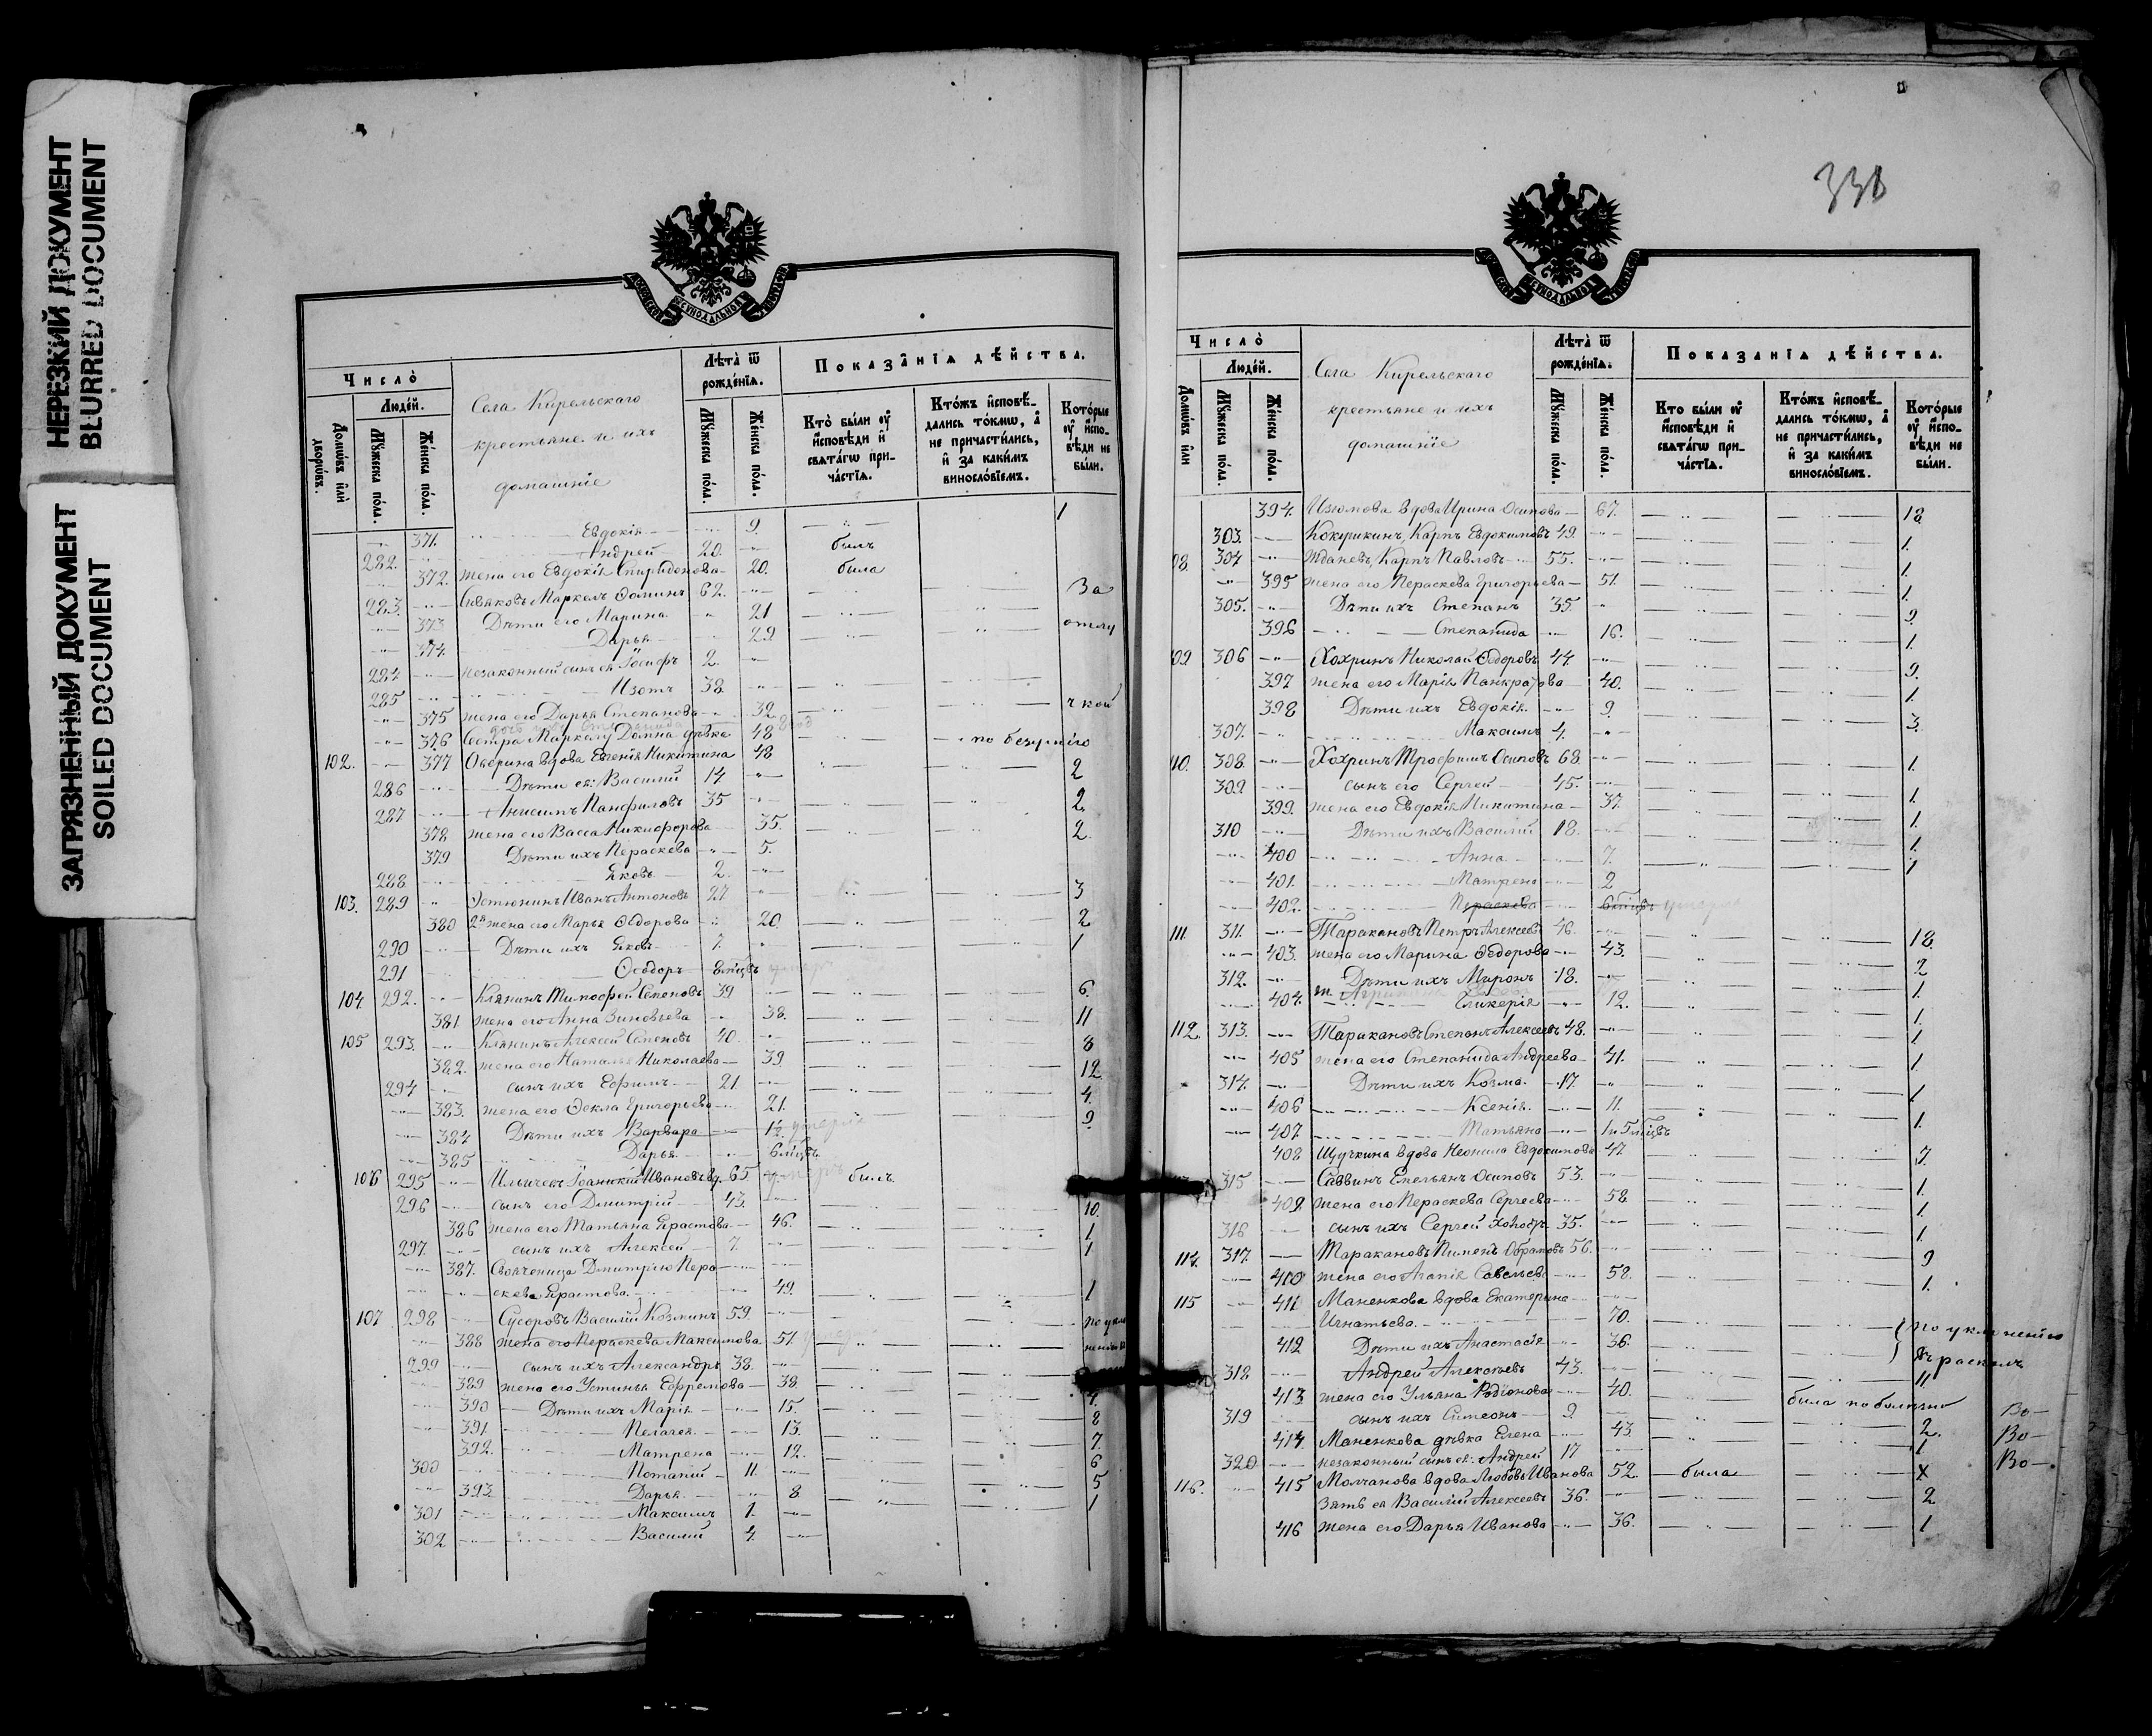 НЕРЕЗКИЙ ДОКУМЕНТ
BLURRED DOCUMENT
ЗАГРЯЗНЕННЫЙ ДОКУМЕНТ
SOILED DOCUMENT
Число̀
Люде́й.
Домѡ́въ и҆лѝ дворѡ́въ.
Мꙋ́жеска по́ла.
Же́нска по́ла.
Села Кирельскаго
крестьяне и ихъ
домашніе
Лѣта̀ ѿ рожде́нїѧ.
Мꙋ́жеска по́ла.
Же́нска по́ла.
Показа̑нїѧ дѣ́йства.
Кто̀ бы́ли ᲂу҆ и҆сповѣди и҆ свѧта́гѡ прича́стїѧ.
Кто́жъ и҆сповѣ́дались то́кмѡ, а҆ не причасти́лись, и҆ за каки́мъ виносло́вїемъ.
Кото́рые ᲂу҆ и҆сповѣди не бы́ли.
371. Евдокія 9. 1
282. Андрей 20. былъ
372. жена его Евдокія Спиридонова 20. была
283. Маркелъ Ѳоминъ 62. За
373 Дѣти его Марина 21
374. Дарья 29 отлу
284 незаконный сынъ ея Іосифъ 2.
285 Изотъ 38.
375 жена его Дарья Степанова 32 чкой
376 Сестра Маркелу Домна дѣвка 48 по безумію
102. 377 вдова Евгенія Никитина 48
286 Дѣти ея: Василій 14 2
287 Анисимъ Панфиловъ 35 2
378 жена его Васса Никифорова 35. 2.
379 Дѣти ихъ Пераскева 5.
288 Яковъ 2.
103. 289 Устюнинъ Иванъ Антоновъ 27 3
380 2я жена его Марья Ѳедорова 20. 2
290 Дѣти ихъ Яковъ 7. 1
291 Ѳеодоръ 8 мѣсцъ
104. 292. Клянинъ Тимоѳей Семеновъ 39 6.
381. жена его Анна Зиновьева 38. 11
105 293. Клянинъ Алексей Семеновъ 40. 8
382. жена его Наталья Николаева 39 12
294 сынъ ихъ Ефимъ 21. 4.
383. жена его Ѳекла Григорьева 21. 9.
384 Дѣти ихъ Варвара 1½
385 Дарья 6 мѣсцъ
106 295 Іоаникій Ивановъ вд. 65 былъ
296 сынъ его Дмитрій 43. 10.
386 жена его Татьяна Ерастова 46. 1
297. сынъ ихъ Алексей 7. 1
387. Своячница Дмитрію Пера
скева Ерастова 49. 1
107 298 Сусоровъ Василій Козминъ 59
388 жена его Пераскева Максимова 51.
299 сынъ ихъ Александръ 38.
389 жена его Устинья Ефремова 38.
390 Дѣти ихъ Марія 15. 4.
391. Пелагея 13. 8
392. Матрена 12. 7.
300 Потапій 11. 6
393. Дарья 8. 5
301 Максимъ 1. 1
302 Василій 4.
Число̀
Люде́й.
Домѡ́въ и҆лѝ
Мꙋ́жеска по́ла.
Же́нска по́ла.
Села Кирельскаго
крестьяне и ихъ
домашніе
Лѣта̀ ѿ рожде́нїѧ.
Мꙋ́жеска по́ла.
Же́нска по́ла.
Показа̑нїѧ дѣ́йства.
Кто бы́ли ᲂу҆ и҆сповѣди и҆ свѧта́гѡ прича́стїѧ.
Кто́жъ и҆сповѣ́дались то́кмѡ, а҆ не причасти́лись, и҆ за каки́мъ виносло́вїемъ.
Кото́рые ᲂу҆ и҆сповѣди не бы́ли.
394. Изюмова вдова Ирина Осипова 67. 12
303. Кокурикинъ Карпъ Евдокимовъ 49. 1.
08. 304 Ждановъ Карпъ Павловъ 55. 1.
395 жена его Пераскева Григорьева 51. 1.
305. Дѣти ихъ Степанъ 35. 9.
396 Степанида 16. 1.
09 306 Хохринъ Николай Ѳедоровъ 44. 9.
397 жена его Марія Панкратова 40. 1.
398 Дѣти ихъ Евдокія 9. 3.
307. Максимъ 4.
10. 308. Хохринъ Трофимъ Осиповъ 68. 1.
309 сынъ его Сергей 45. 1.
399. жена его Евдокія Никитина 37. 1.
310 Дѣти ихъ Василій 18. 1.
400 Анна 7. 1
401. Матрена 2
402. Пераскева 6 мѣсцъ
111. 311. Таракановъ Петръ Алексеевъ 46. 18.
403. жена его Марина Ѳедорова 43. 2
312. Дѣти ихъ Миронъ 18. 1.
404. Гликерія 12. 1.
112. 313. Таракановъ Степанъ Алексеевъ 48. 1
405 жена его Степанида Андреева 41. 1
314. Дѣти ихъ Козма 17. 1
406 Ксенія 11. 1.
407. Татьяна 1 и 5 мѣсцъ
408 Щучкина вдова Неонила Евдокимова 47 7.
315 Саввинъ Емельянъ Осиповъ 53. 1.
409. жена его Пераскева Сергеева 58 1.
316 сынъ ихъ Сергей холостъ 35. 1.
114. 317. Таракановъ Пименъ 56. 9
410 жена его Агапія Савельева 58. 1.
115 411 Маненкова вдова Екатерина
Игнатьева 70.
412 Дѣти ихъ Анастасія 36. по уклоненію
318 Андрей Алексѣевъ 43. въ расколъ
413. жена его Ульяна Родіонова 40. 11
319 сынъ ихъ Симеонъ 9. была по болѣзни Во
414. Маненкова дѣвка Елена 43 2. Во
320 незаконный сынъ ея: Андрей 17 1 Во
116. 415 Молчанова вдова Любовь Иванова 52. была х
Зять ея Василій Алексеевъ 36. 2
416 жена его Дарья Иванова 36. 1